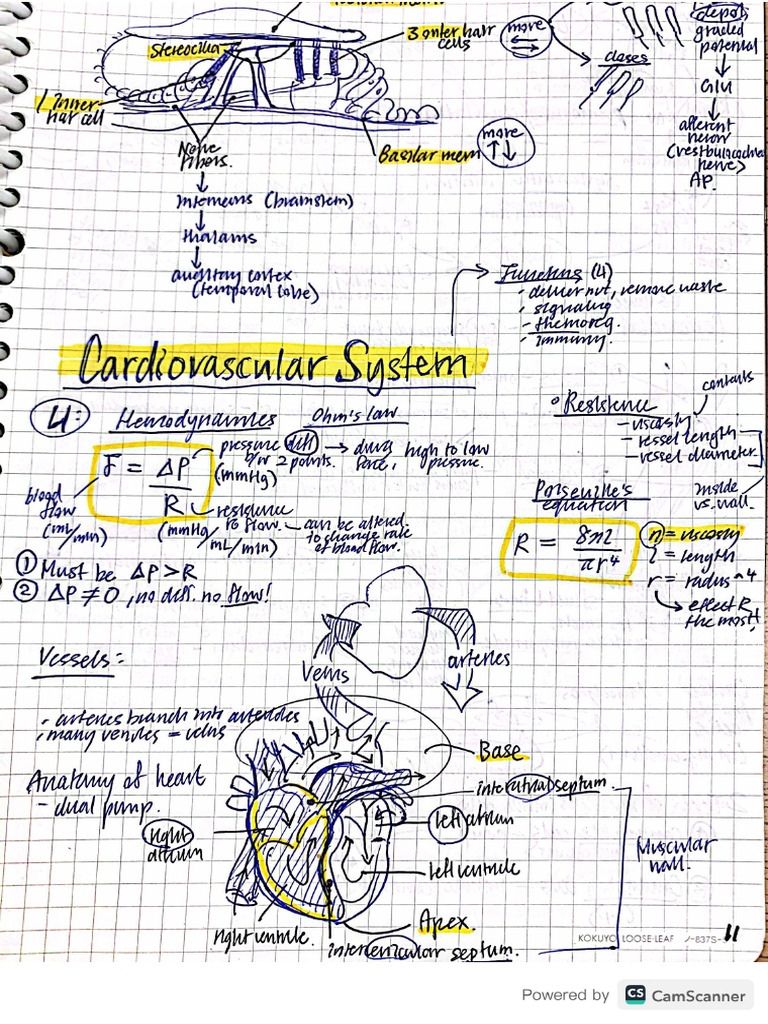 Stereocilia
3 outer hair
cells
more
depol
graded
potential
closes
Glu
afferent
neuron
(vestibulocochlear
nerve)
AP.
1 Inner
hair cell
Nerve
fibers.
Basilar mem
more
interneurons (brainstem)
thalamus
auditory cortex
(temporal lobe)
Functions (4)
- deliver nut, remove waste
- signaling
- thermoreg.
- immunity.
Cardiovascular System
4:
Hemodynamics
Ohm's law
F = ΔP
R
pressure diff → drives high to low
b/w 2 points. force, pressure.
(mmHg)
blood
flow
(mL/min)
resistance
to flow. - can be altered
to change rate
of blood flow.
(mmHg/
mL/min)
① Must be ΔP > R
② ΔP ≠ 0, no diff. no flow!
Resistence
- viscosity
- vessel length
- vessel diameter
contents
inside
vs. wall.
Poiseuille's
equation
R = 8nl
πr⁴
n = viscosity
l = length
r = radius^4
→ effect R
the most!
Vessels:
veins
arteries
- arteries branch into arterioles
- many venules = veins
Anatomy of heart
- dual pump.
Base
interatrial septum
right
atrium
left atrium
left ventricle
Muscular
wall.
right ventricle.
Apex
interventricular septum.
KOKUYO LOOSE-LEAF
11
Powered by CS CamScanner